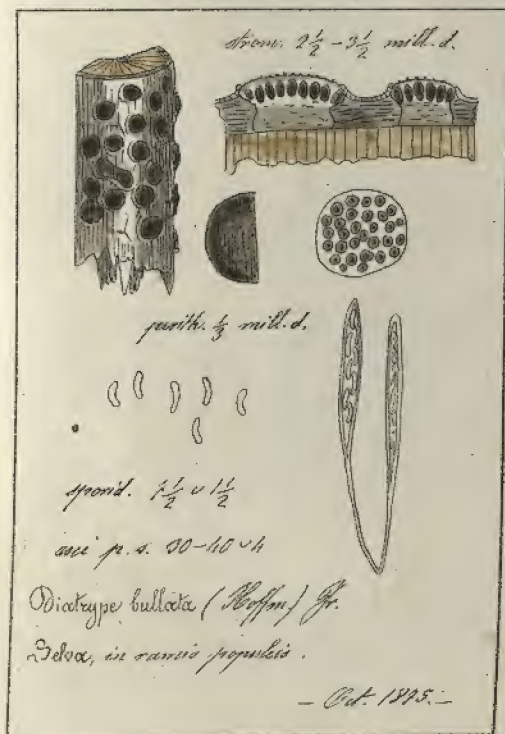 strom. 2½ – 3½ mill. d.
perith. ⅓ mill. d.
sporid. 7½ ∪ 1½
asci p. s. 30–40 ∪ 4
Diatrype bullata (Hoffm) Fr.
Selva, in ramis populeis.
– Oct. 1895. –